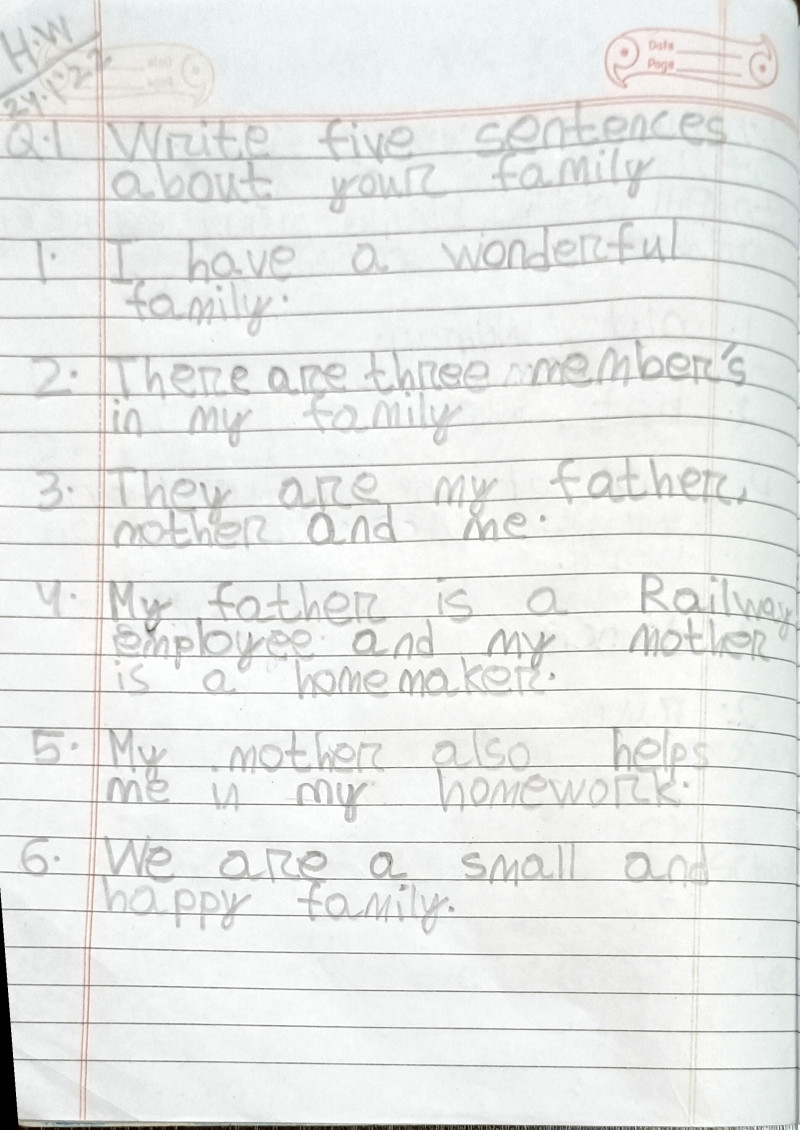 H.W
24.1.22
Date
Page
Q.1 Write five sentences
about your family
1. I have a wonderful
family.
2. There are three member's
in my family
3. They are my father,
mother and me.
4. My father is a Railway
employee and my mother
is a homemaker.
5. My mother also helps
me in my homework.
6. We are a small and
happy family.